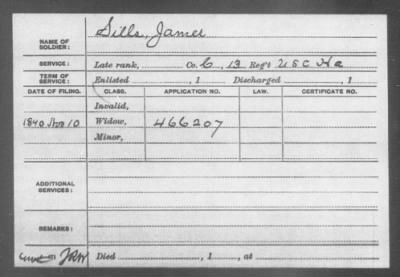 NAME OF SOLDIER: Sills, James
SERVICE: Late rank, Co. C, 13 Reg't U S C H a
TERM OF SERVICE: Enlisted , 1 Discharged , 1
DATE OF FILING. CLASS. APPLICATION NO. LAW. CERTIFICATE NO.
Invalid,
1890 10 Widow, 466207
Minor,
ADDITIONAL SERVICES:
REMARKS:
Died , 1 , at